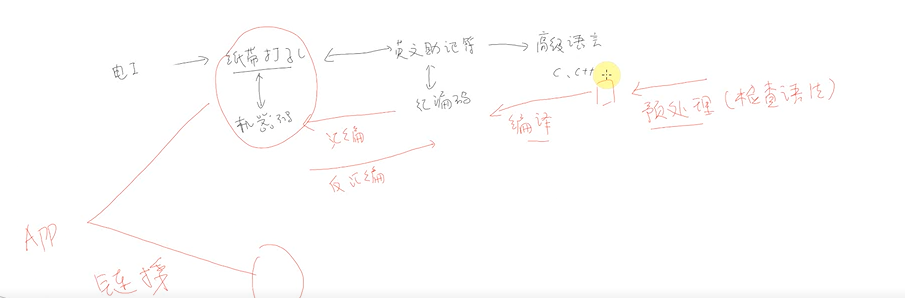 电工 → 纸带打孔 ↔ 英文助记符 → 高级语言
C、C++
机器码
汇编码
汇编
反汇编
编译
预处理(检查语法)
APP
链接